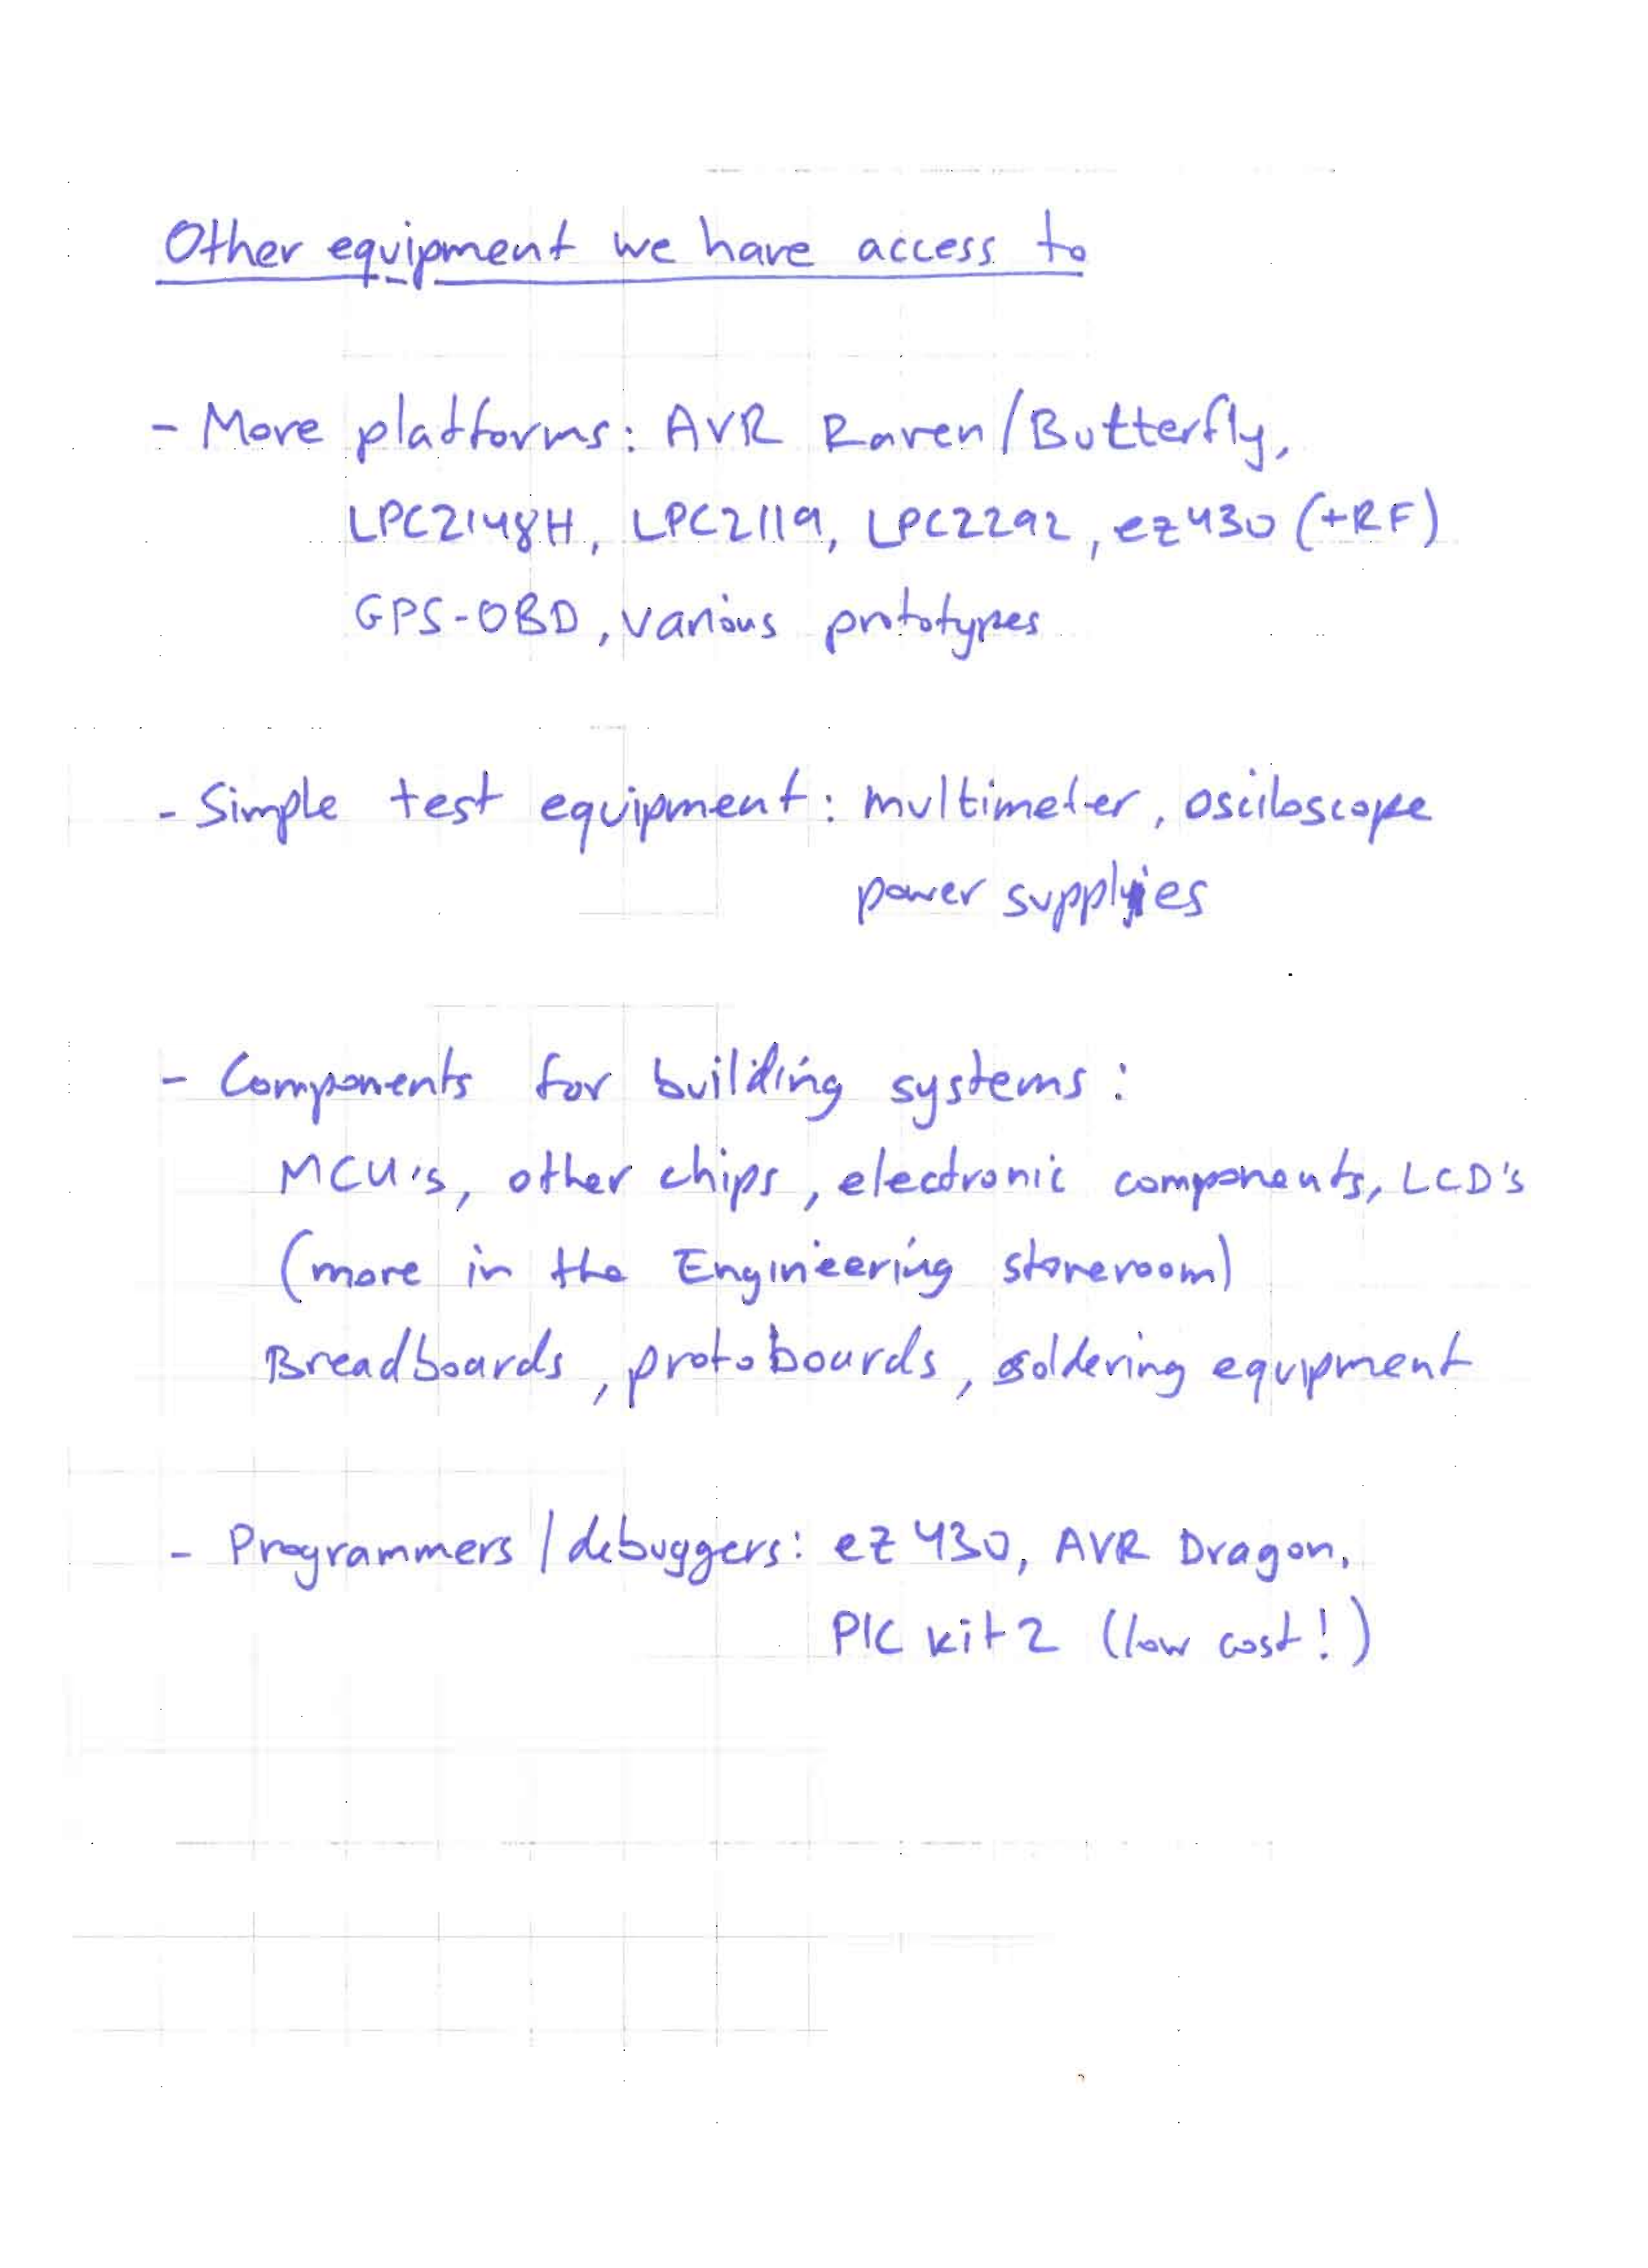 Other equipment we have access to
- More platforms: AVR Raven/Butterfly,
LPC2148H, LPC2119, LPC2292, ez430 (+RF)
GPS-OBD, various prototypes
- Simple test equipment: multimeter, osciloscope
power supplies
- Components for building systems:
MCU's, other chips, electronic components, LCD's
(more in the Engineering storeroom)
Breadboards, protoboards, soldering equipment
- Programmers/debuggers: ez430, AVR Dragon,
PIC kit 2 (low cost!)